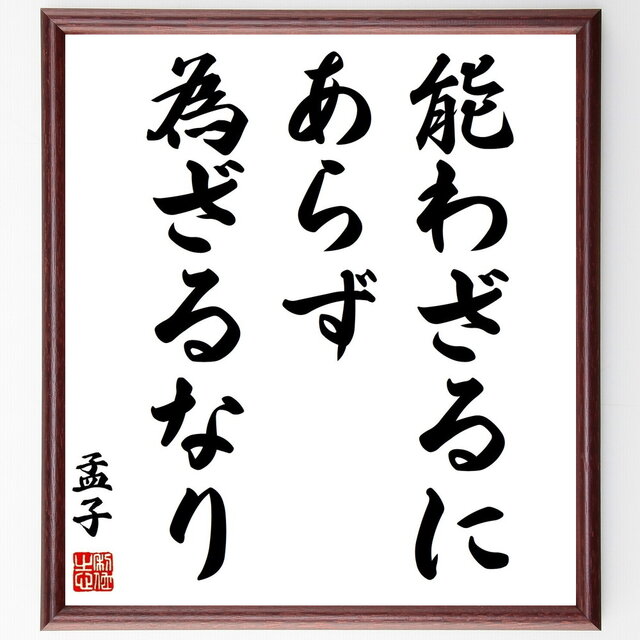 能わざるに
あらず
為ざるなり
孟子